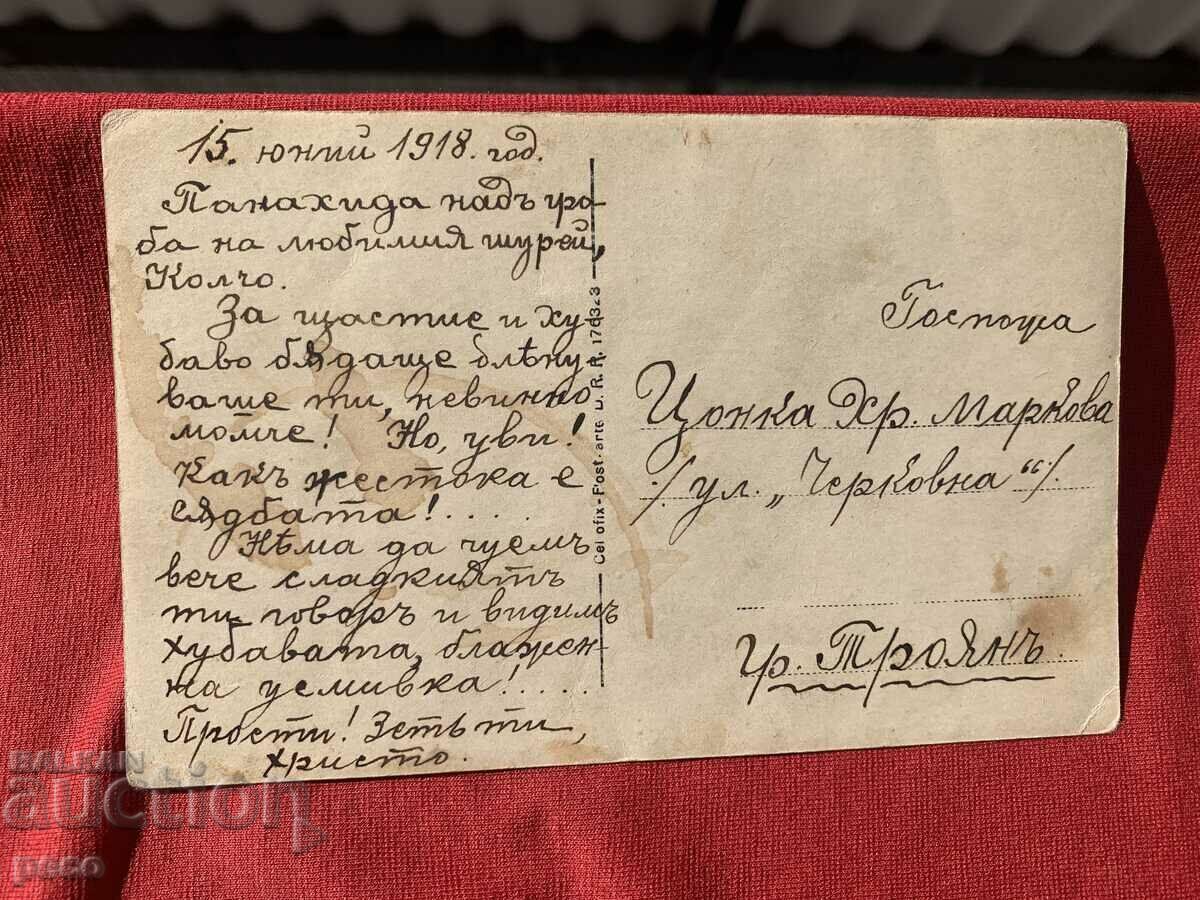 15. юний 1918. год.
Панахида надъ гро-
ба на любимия шурей,
Колчо.
За щастие и ху-
баво бѫдаще блѣну
ваше ти, невинно
момче! Но, уви!
Какъ жестока е
сѫдбата!....
Нѣма да чуемъ
вече сладкиятъ
ти говоръ и видимъ
хубавата, блажен-
на усмивка!....
Прости! Зеть ти,
Христо.
Cel ofix - Post - arte D. R. R. 176323
Госпожа
Цонка Хр. Маркова
/ ул. „Черковна“ /.
гр. Троянъ.
BALKAN
auction
peso